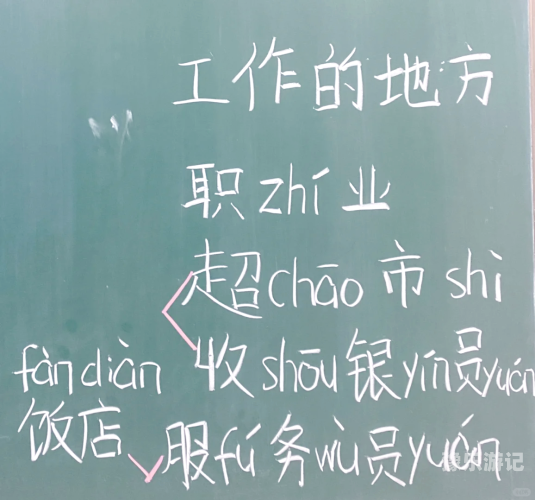 工作的地方
职zhí业
超chāo市shì
fàndiàn 收shōu银yín员yuán
饭店 服fú务wù员yuán